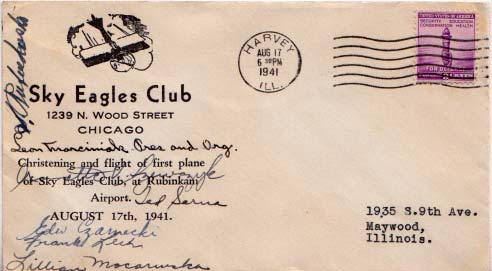 HARVEY
AUG 17
6 30 PM
1941
ILL.
UNITED STATES OF AMERICA
SECURITY EDUCATION
CONSERVATION HEALTH
FOR DEFENSE
CENTS
Sky Eagles Club
1239 N. WOOD STREET
CHICAGO
Leon Marciniak Pres and Org.
Christening and flight of first plane
of Sky Eagles Club, at Rubinkam
Airport.
Ted Serna
AUGUST 17th, 1941.
Edw Czarnecki
Frank
Lillian
1935 S.9th Ave.
Maywood,
Illinois.